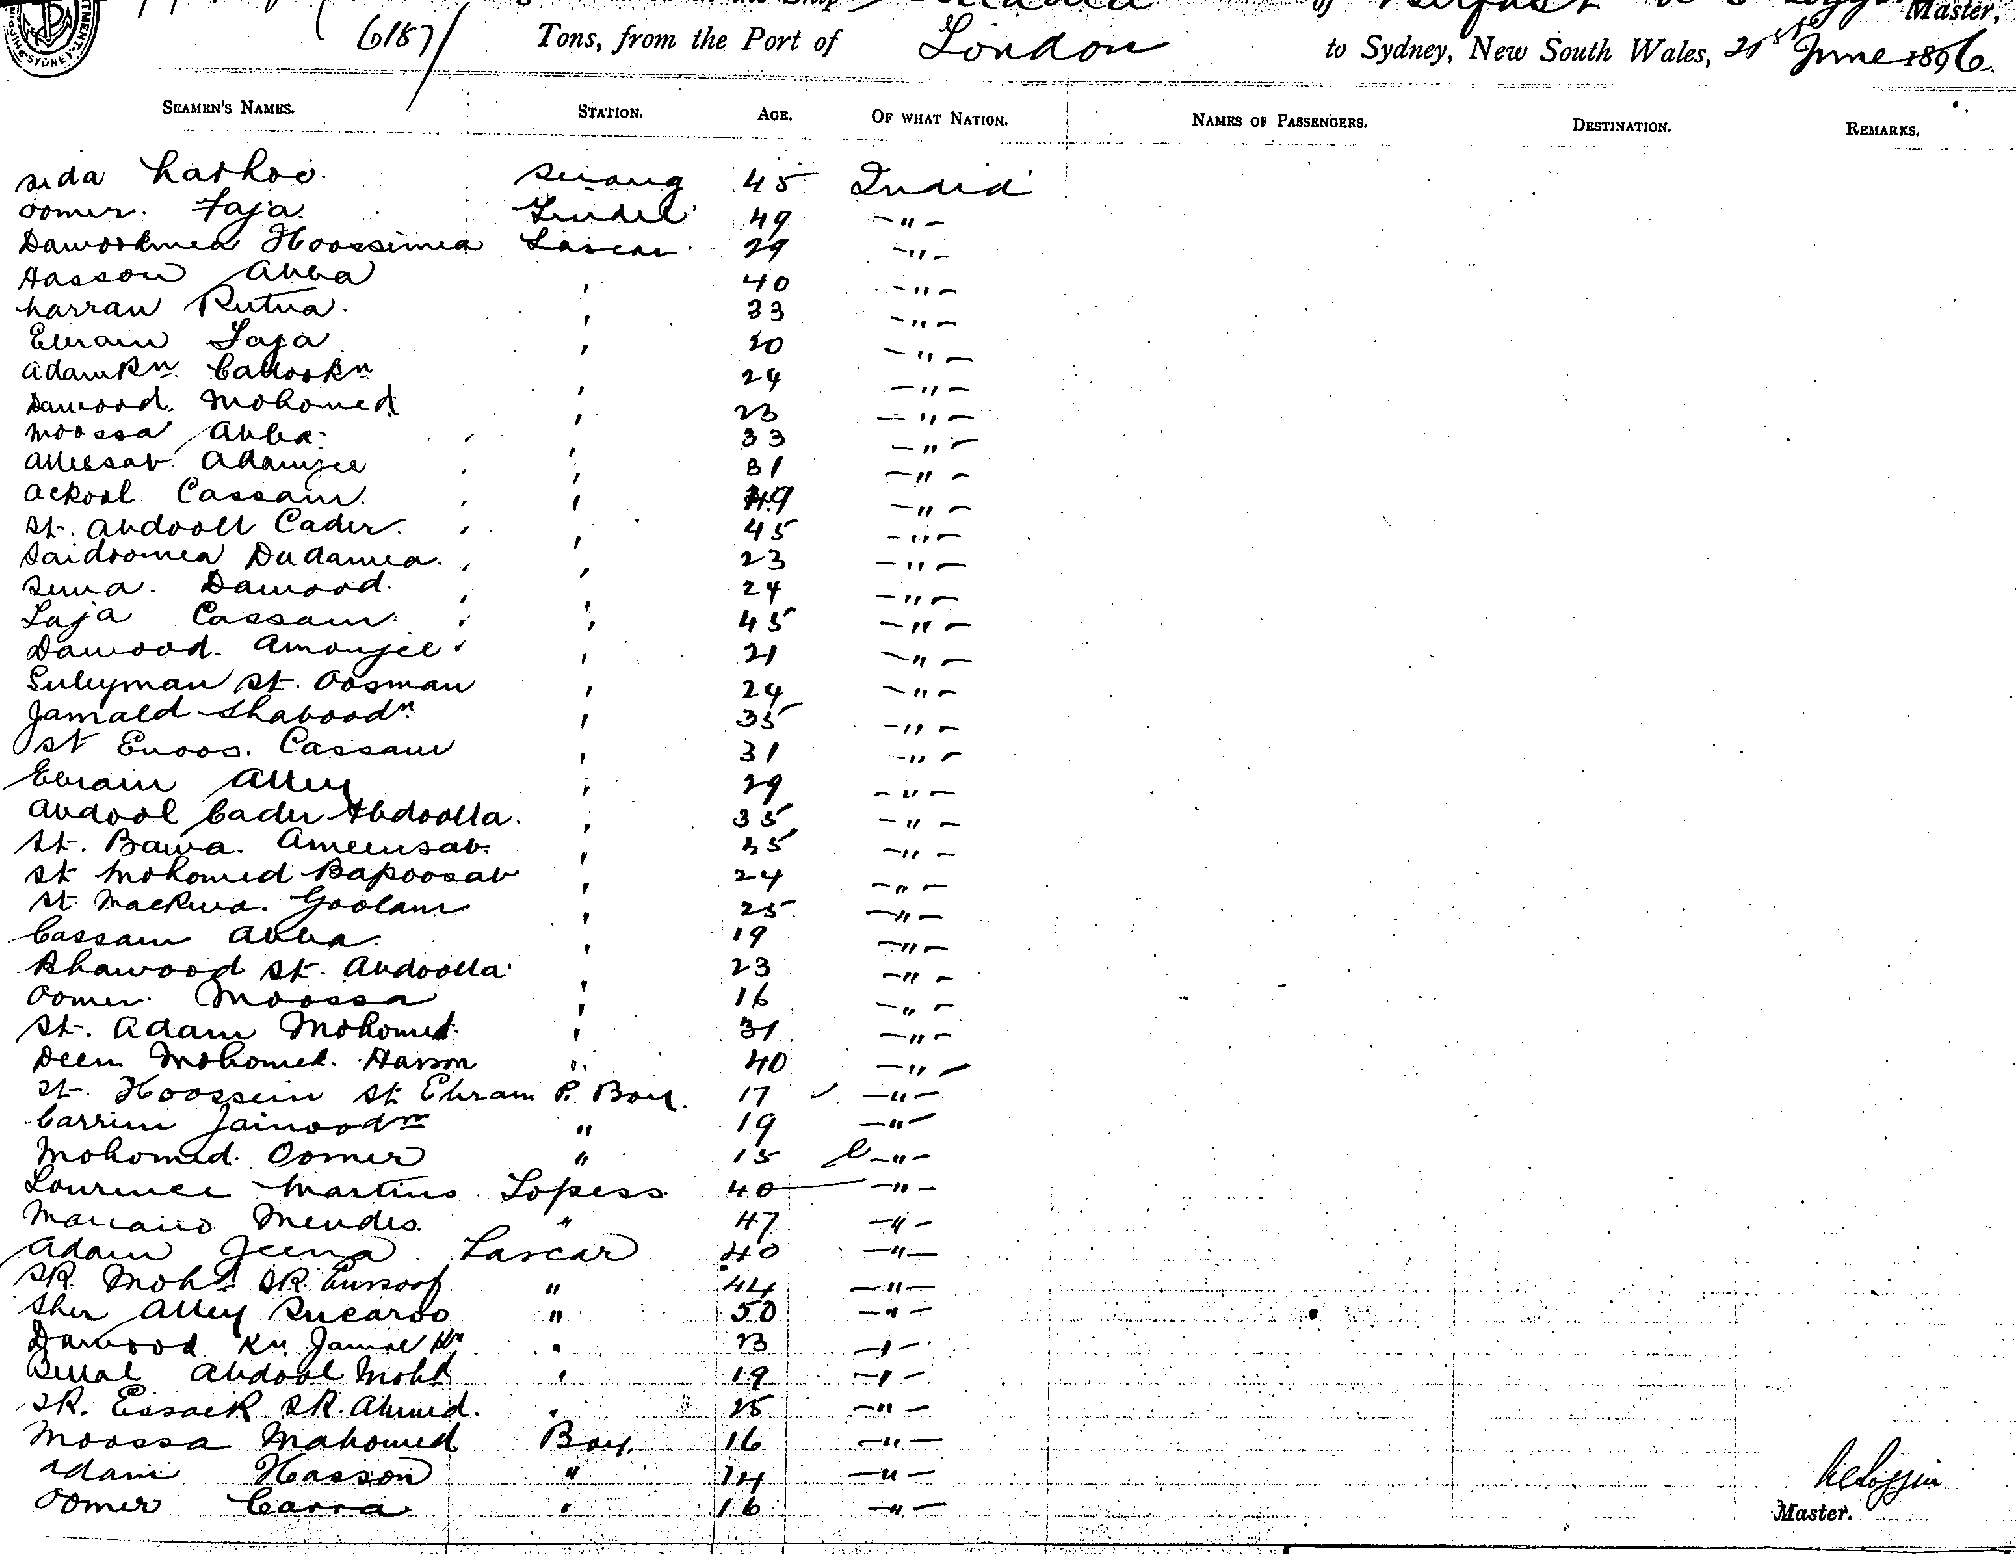 of Belfast
Master,
6187 Tons, from the Port of London to Sydney, New South Wales, 21st June 1896
SEAMEN'S NAMES. STATION. AGE. OF WHAT NATION. NAMES OF PASSENGERS. DESTINATION. REMARKS.
Sida Serang 45 India
Oomer. Tindel 49 -"-
Dawoodmea Hoossimea Lascar 29 -"-
Hasson Abba ' 40 -"-
Rutna. ' 33 -"-
Ebram Laja ' 20 -"-
Adamkn ' 24 -"-
Dawood. Mohomed ' 23 -"-
Moossa Abba. ' 33 -"-
Alleesab. Adamjee ' 31 -"-
Cassam. ' 49 -"-
St. Abdooll Cader. ' 45 -"-
Saidoomea Dadamea. ' 23 -"-
Dawood. ' 24 -"-
Laja Cassam. ' 45 -"-
Dawood. Amonjee ' 21 -"-
Suleyman St. Oosman ' 24 -"-
Jamald Shaboodn ' 35 -"-
St Enoos. Cassam ' 31 -"-
Ebram Alley ' 29 -"-
Abdool Cader Abdoolla. ' 35 -"-
St. Bawa. Ameensab. ' 35 -"-
St Mohomed Bapoosab ' 24 -"-
St. Goolam ' 25 -"-
Cassam Abba. ' 19 -"-
St. Abdoolla ' 23 -"-
Oomer. Moossa ' 16 -"-
St. Adam Mohomed. ' 31 -"-
Deen Mohomed. Hasson " 40 -"-
St. Hoossein St Ebram P. Boy. 17 -"-
Carrim Jainoodn " 19 -"-
Mohomed. Oomer " 15 -"-
Lourence Martins Lopess 40 -"-
Mendes " 47 -"-
Adam Jeena. Lascar 40 -"-
SK. Mohd. SK. Eussoof " 44 -"-
Sher Alley " 50 -"-
Dawood Kn. Jamal Kn " 23 -"-
Abdool Mohd ' 19 -"-
SK. Essack SK. Ahmed. ' 25 -"-
Moossa Mahomed Boy. 16 -"-
Adam Hasson " 14 -"-
Oomer ' 16 -"-
Master.